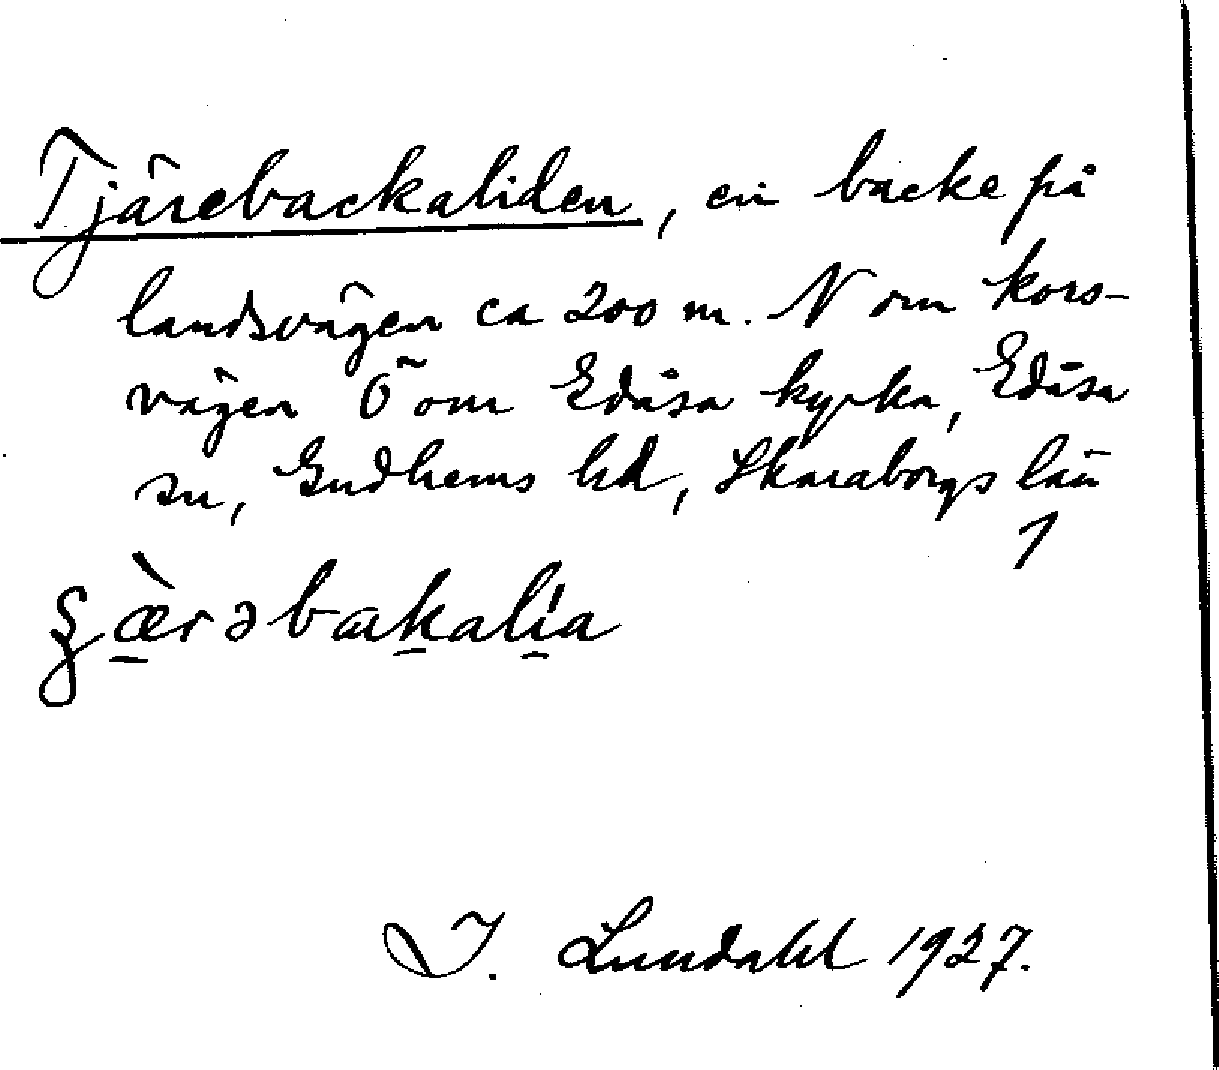 Tjärebackaliden, en backe på
landsvägen ca 200 m. N om kors-
vägen Ö om Edåsa kyrka, Edåsa
sn, Gudhems hd, Skaraborgs län
1
I. Lundahl 1927.